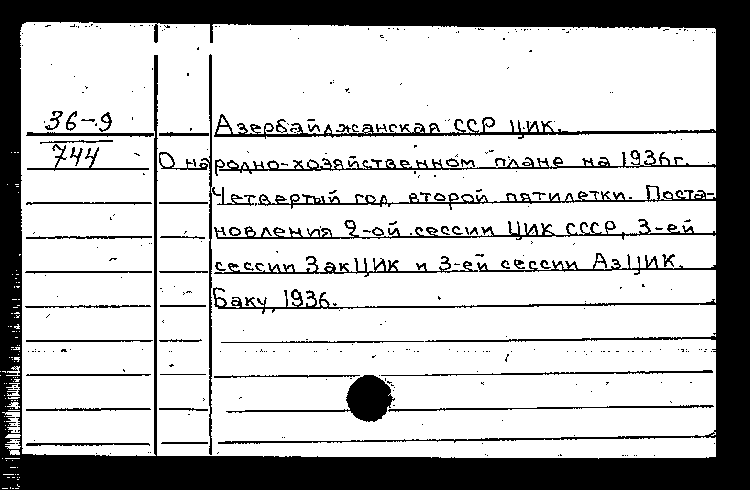 36-9 Азербайджанская ССР ЦИК.
744 О народно-хозяйственном плане на 1936г.
Четвертый год второй пятилетки. Поста-
новления 2-ой сессии ЦИК СССР, 3-ей
сессии ЗакЦИК и 3-ей сессии АзЦИК.
Баку, 1936.